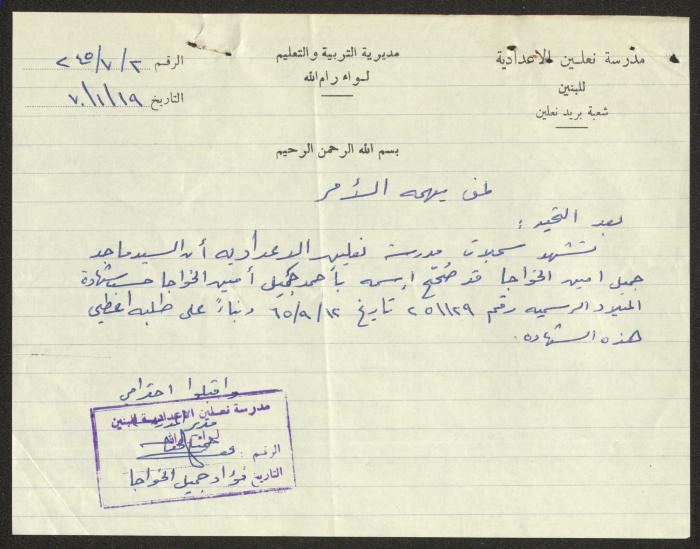 مدرسة نعلين الاعدادية
للبنين
شعبة بريد نعلين
مديرية التربية والتعليم
لواء رام الله
الرقم ٢٤٥/٧/٢
التاريخ ٧٠/١/١٩
بسم الله الرحمن الرحيم
لمن يهمه الأمر
بعد التحية :
تشهد سجلات مدرسة نعلين الاعدادية أن السيد ماجد
جميل امين الخواجا قد صُحّح إسمه بأحمد جميل أمين الخواجا حسب شهادة
الميلاد الرسمية رقم ٢٥١١٢٩ تاريخ ٦٥/٩/١٢ وبناءً على طلبه اعطي
هذه الشهادة.
واقبلوا احترامي
مدرسة نعلين الاعدادية للبنين
مدير المدرسة
لواء رام الله
الرقم :
التاريخ
فؤاد جميل الخواجا